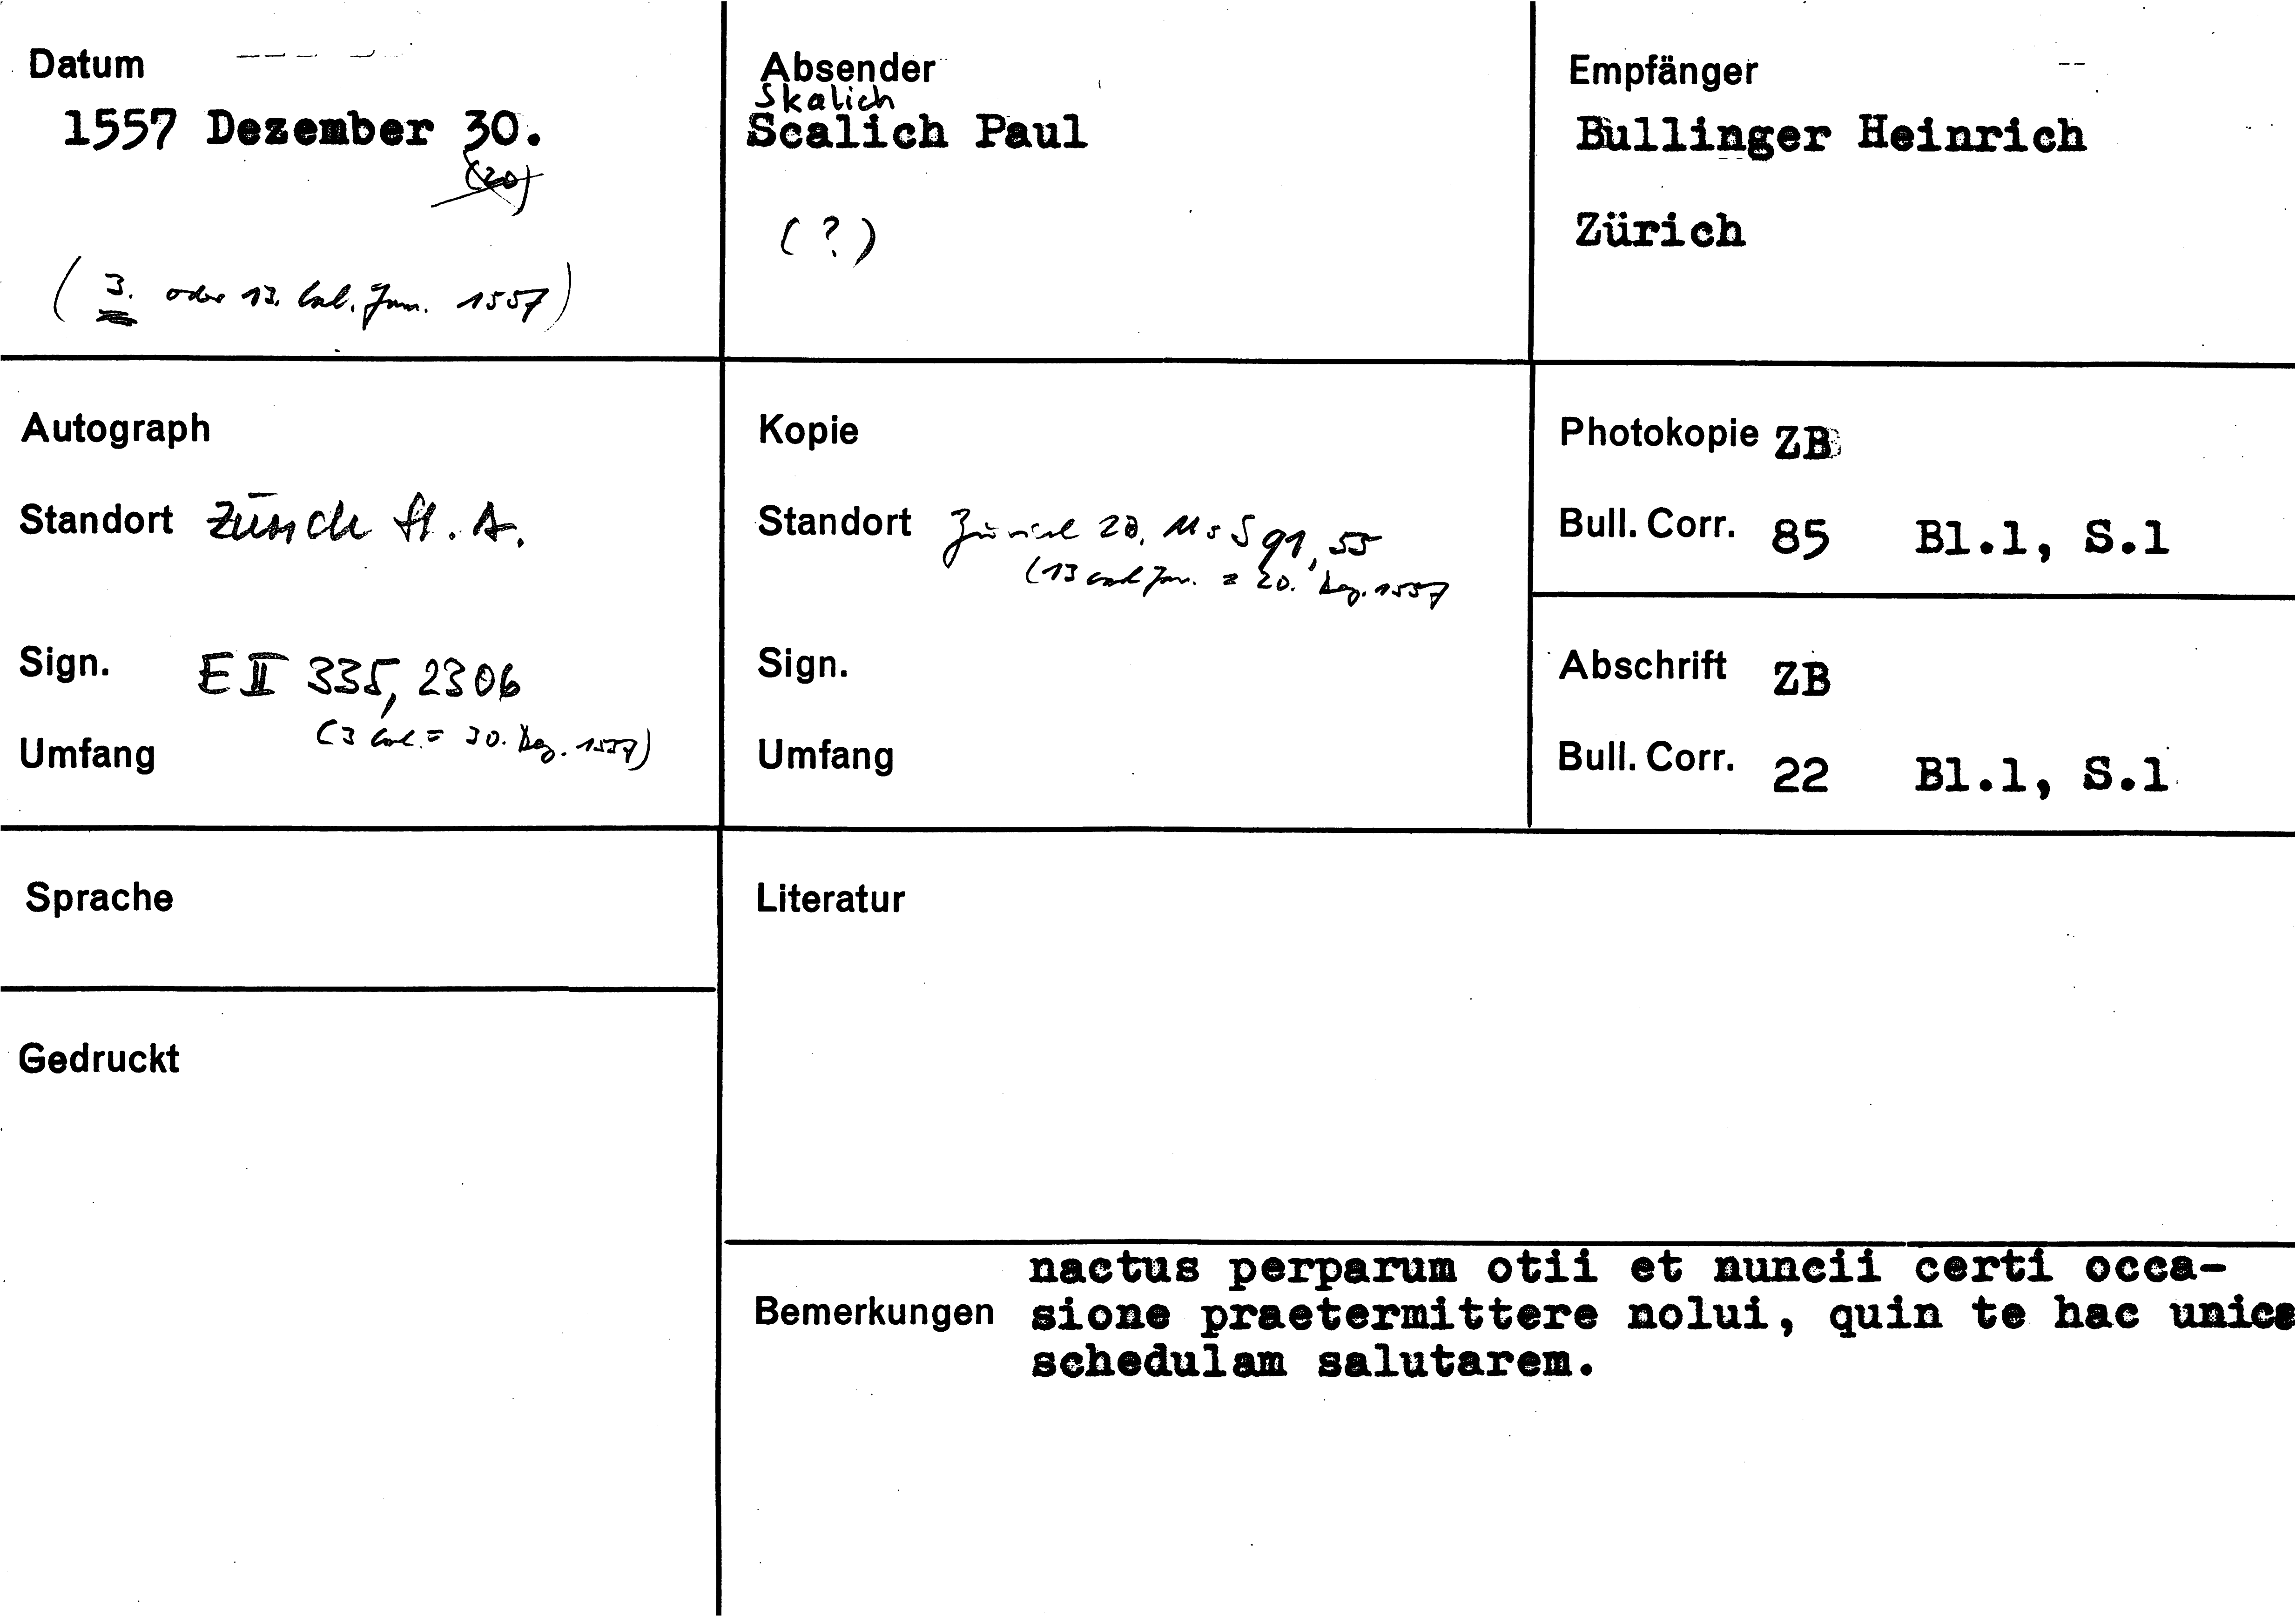 Datum
1557 Dezember 30.
(20)
(3. oder 13. cal. Jan. 1557)
Absender
Skalich
Scalich Paul
(?)
Empfänger
Bullinger Heinrich
Zürich
Autograph
Standort Zürich St. A.
Sign. E II 335, 2306
(3 cal. = 30. Dez. 1557)
Umfang
Kopie
Standort Zürich ZB, Ms S 91, 55
(13 cal Jan. = 20. Dez. 1557
Sign.
Umfang
Photokopie ZB
Bull. Corr. 85 Bl.1, S.1
Abschrift ZB
Bull. Corr. 22 Bl.1, S.1
Sprache
Gedruckt
Literatur
Bemerkungen
nactus perparum otii et nuncii certi occa-
sione praetermittere nolui, quin te hac unica
schedulam salutarem.